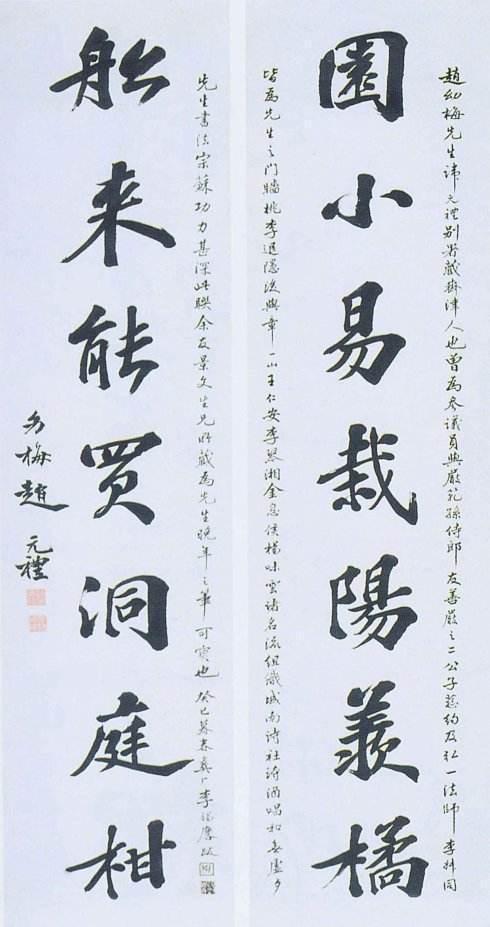 趙幼梅先生諱元禮別署藏齋津人也曾為參議員與嚴範孫侍郎友善嚴之二公子慈約及弘一法師李叔同
園小易栽陽羨橘
皆為先生之門牆桃李退隱後與章一山王仁安李琴湘金息侯楊味雲諸名流組織城南詩社詩酒唱和無虛夕
先生書法宗蘇功力甚深此聯余友景文生兄所藏為先生晚年之筆可寶也癸巳暮春
船来能買洞庭柑
幼梅趙元禮